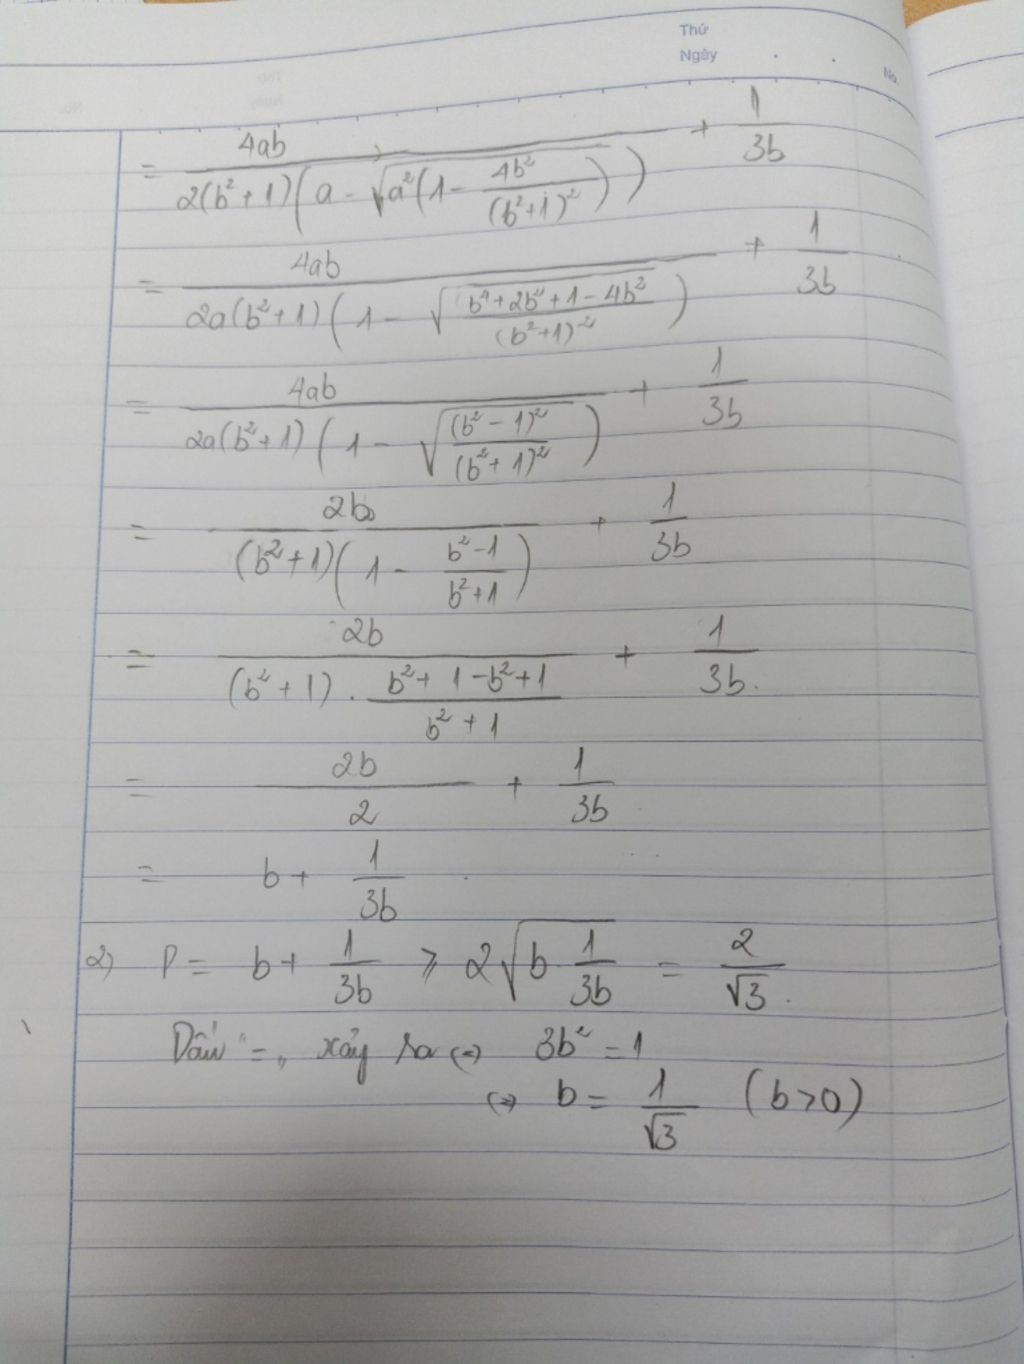 Thứ
Ngày
No.
= \frac{4ab}{2(b^2+1)\left(a - \sqrt{a^2\left(1 - \frac{4b^2}{(b^2+1)^2}\right)}\right)} + \frac{1}{3b}
= \frac{4ab}{2a(b^2+1)\left(1 - \sqrt{\frac{b^4+2b^2+1-4b^2}{(b^2+1)^2}}\right)} + \frac{1}{3b}
= \frac{4ab}{2a(b^2+1)\left(1 - \sqrt{\frac{(b^2-1)^2}{(b^2+1)^2}}\right)} + \frac{1}{3b}
= \frac{2b}{(b^2+1)\left(1 - \frac{b^2-1}{b^2+1}\right)} + \frac{1}{3b}
= \frac{2b}{(b^2+1) \cdot \frac{b^2+1-b^2+1}{b^2+1}} + \frac{1}{3b}.
= \frac{2b}{2} + \frac{1}{3b}
= b + \frac{1}{3b}
2) P = b + \frac{1}{3b} ⩾ 2\sqrt{b \cdot \frac{1}{3b}} = \frac{2}{\sqrt{3}}.
Dấu "=" xảy ra (=) 3b^2 = 1
(=) b = \frac{1}{\sqrt{3}} (b>0)